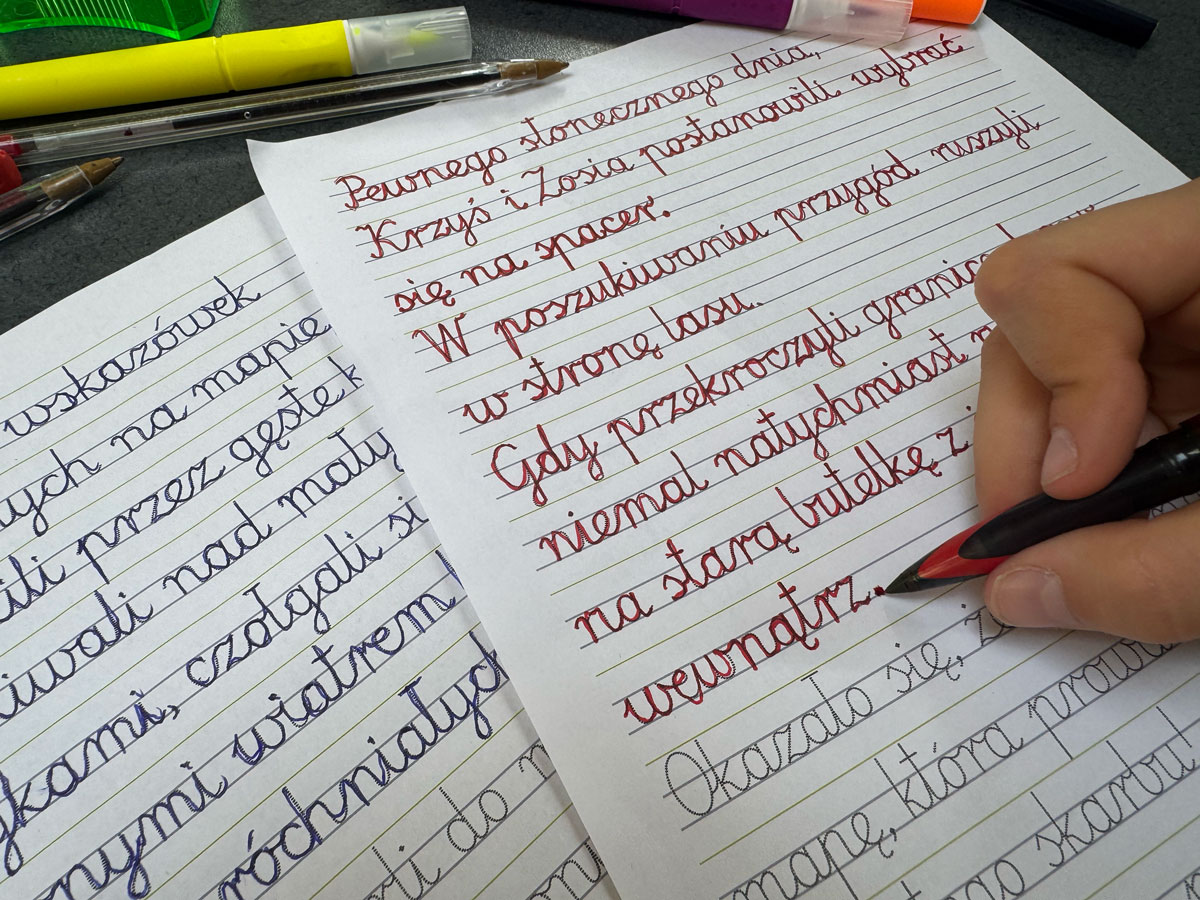 Pewnego słonecznego dnia,
Krzyś i Zosia postanowili wybrać
się na spacer.
W poszukiwaniu przygód ruszyli
w stronę lasu.
Gdy przekroczyli granicę
niemal natychmiast
na starą butelkę z
wewnątrz.
Okazało się,
mapę, która prowa
skarbu
wskazówek
ych na mapie
ili przez gęste k
iwali nad mały
kami, czołgali si
nymi wiatrem
róchniałych
li do